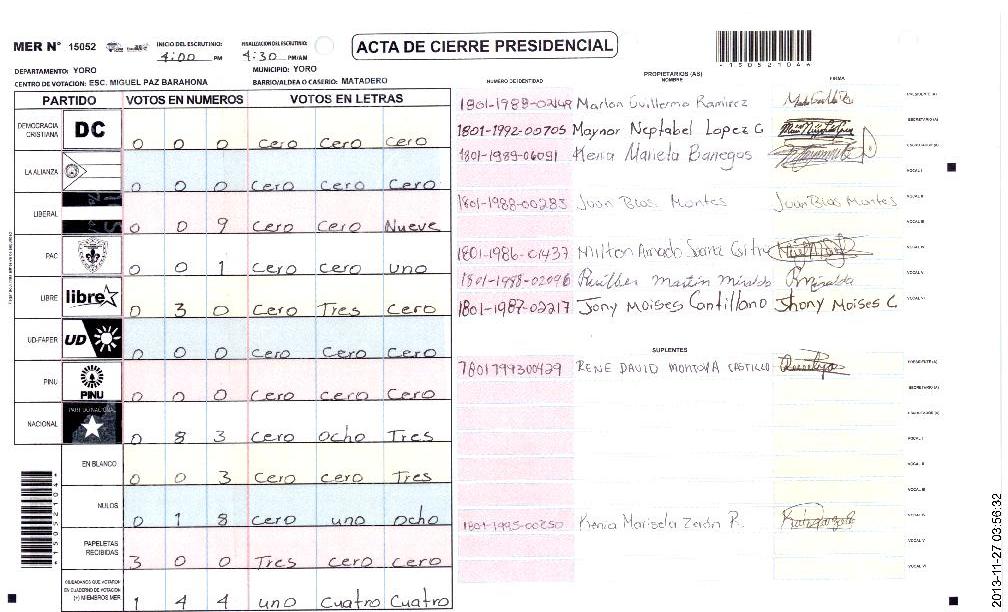 MER N° 15052
INICIO DEL ESCRUTINIO: 4:00 PM
FINALIZACION DEL ESCRUTINIO: 4:30 PM/AM
ACTA DE CIERRE PRESIDENCIAL
*150521044
DEPARTAMENTO: YORO
MUNICIPIO: YORO
CENTRO DE VOTACION: ESC. MIGUEL PAZ BARAHONA
BARRIO/ALDEA O CASERIO: MATADERO
PARTIDO VOTOS EN NUMEROS VOTOS EN LETRAS
DEMOCRACIA CRISTIANA DC 0 0 0 Cero Cero Cero
LA ALIANZA 0 0 0 Cero Cero Cero
LIBERAL 0 0 9 Cero Cero Nueve
PAC 0 0 1 Cero Cero uno
LIBRE libre 0 3 0 Cero Tres Cero
UD-FAPER UD 0 0 0 Cero Cero Cero
PINU PINU 0 0 0 Cero Cero Cero
NACIONAL PARTIDO NACIONAL 0 8 3 Cero ocho Tres
EN BLANCO 0 0 3 Cero Cero Tres
NULOS 0 1 8 Cero uno ocho
PAPELETAS RECIBIDAS 3 0 0 Tres cero cero
CIUDADANOS QUE VOTARON EN CUADERNO DE VOTACION (+) MIEMBROS MER 1 4 4 uno Cuatro Cuatro
NUMERO DE IDENTIDAD PROPIETARIOS (AS) NOMBRE FIRMA
Marlon Guillermo Ramirez PRESIDENTE (A)
1801-1992-00705 Maynor Neptabel Lopez C SECRETARIO (A)
1801-1989-06091 Kenia Mariela Banegas ESCRUTADOR (A)
VOCAL I
1801-1988-00283 Juan Blas Montes Juan Blas Montes VOCAL II
VOCAL III
1801-1986-01437 Milton Amado VOCAL IV
1801-1998-02096 Martin VOCAL V
1801-1987-02217 Jony Moises Cantillano Jhony Moises C VOCAL VI
SUPLENTES
RENE DAVID MONTOYA CASTILLO PRESIDENTE (A)
SECRETARIO (A)
ESCRUTADOR (A)
VOCAL I
VOCAL II
VOCAL III
1801-1995-00250 Kenia Marisela R. VOCAL IV
VOCAL V
VOCAL VI
2013-11-27 03:56:32